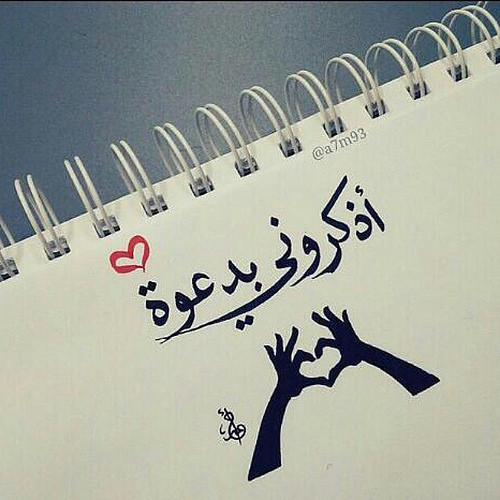 @a7m93
أذكروني بدعوة